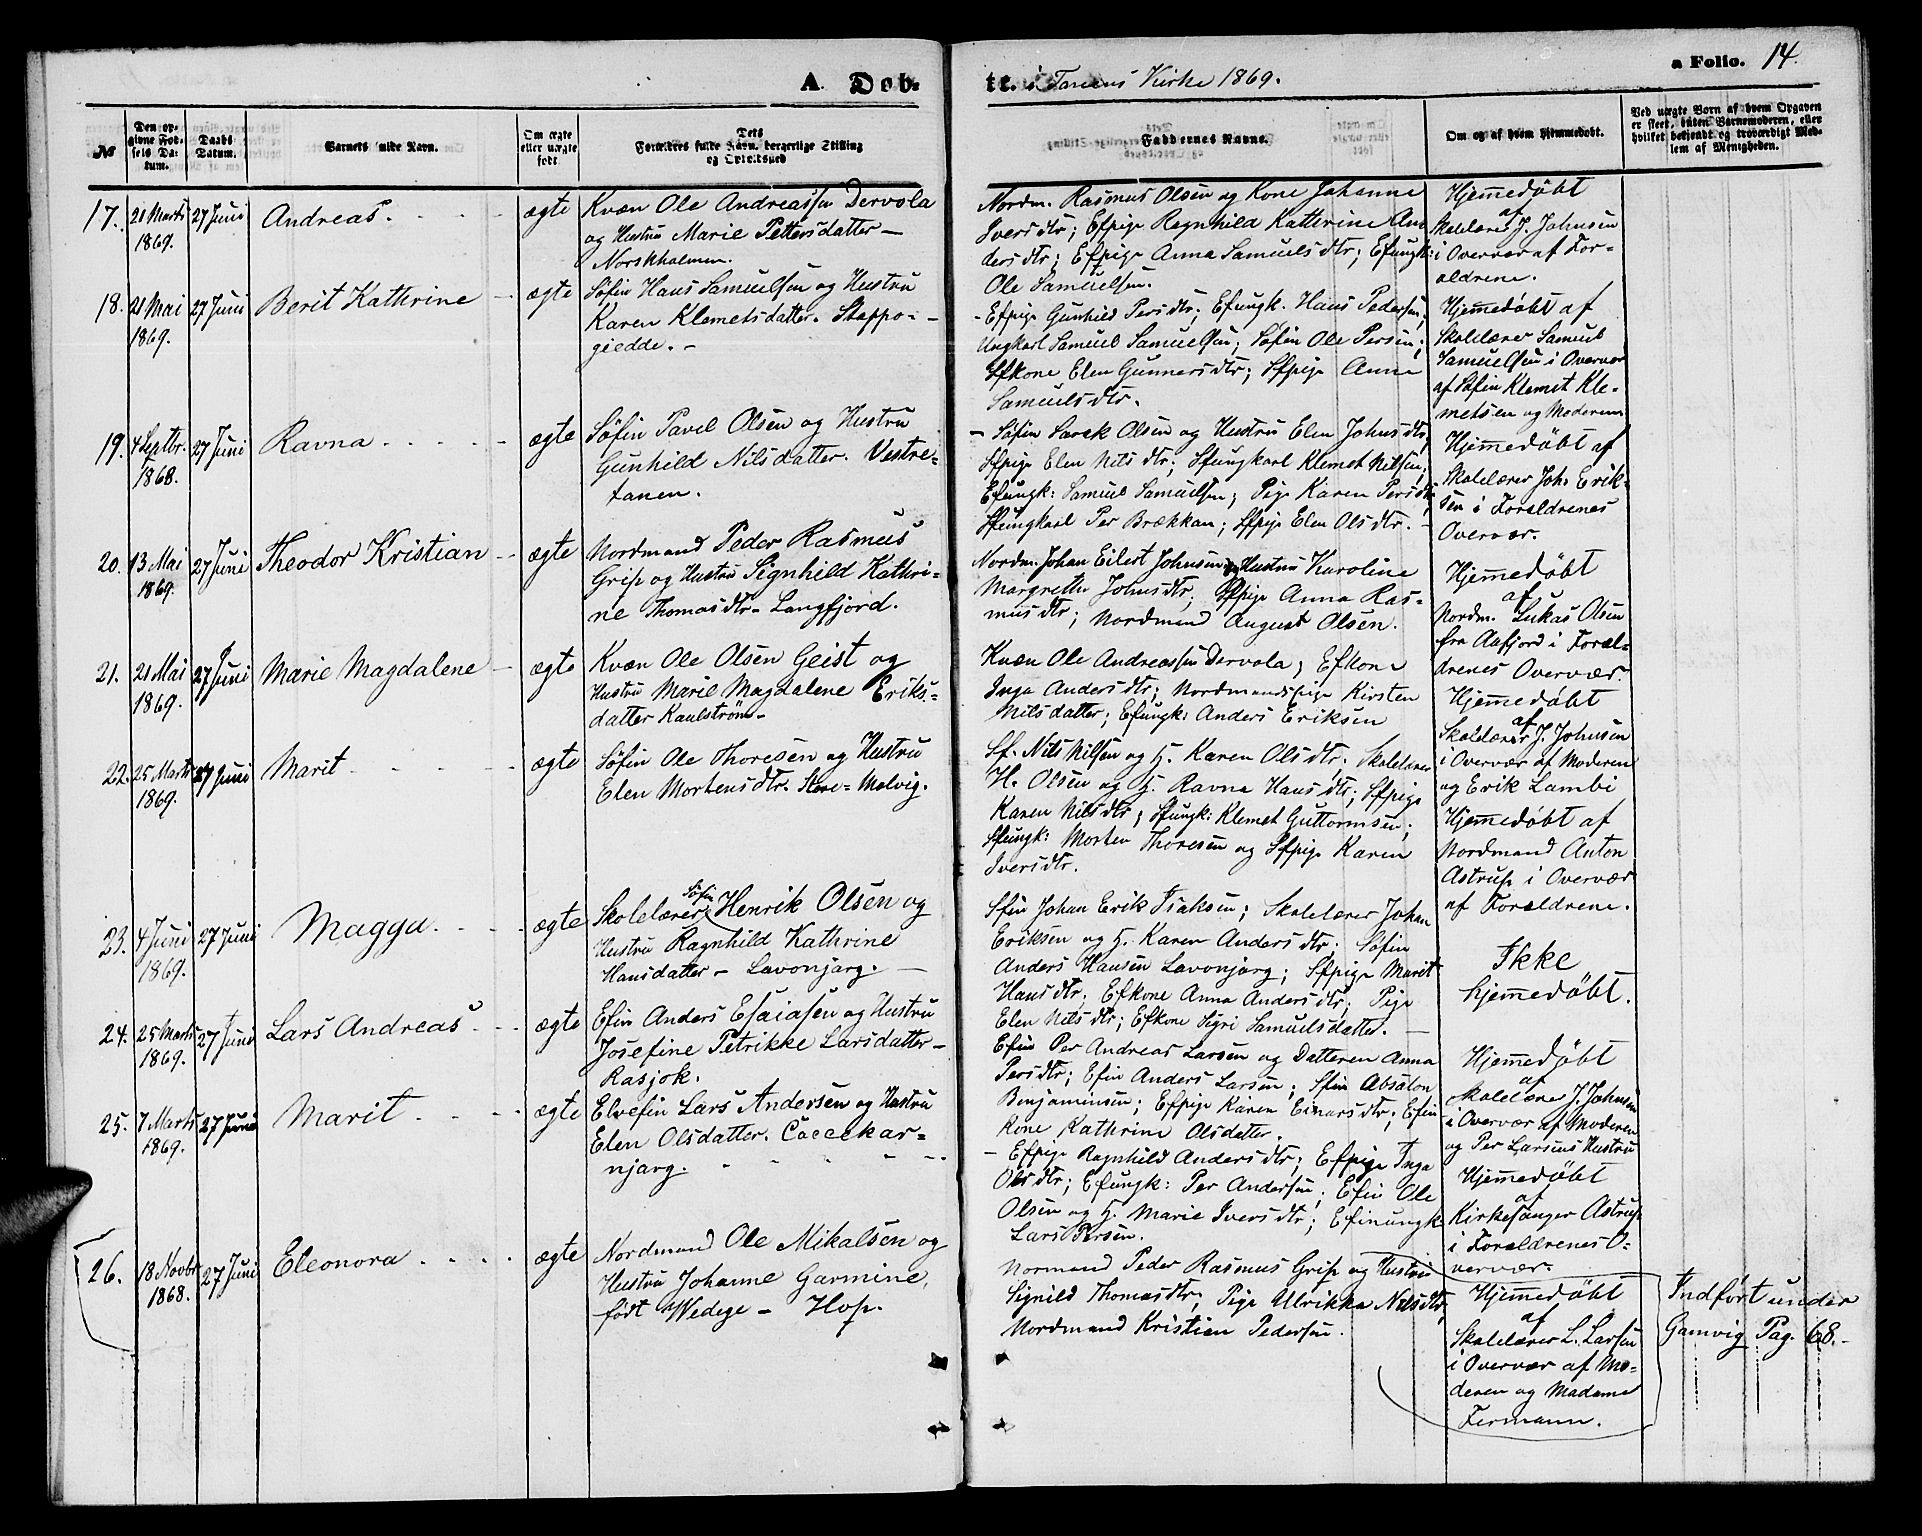 A. Døb-
te. i Tanens Kirke 1869.
a Folio. 14.
№
Den opgivne Fødsels Datum.
Daabs Datum.
Barnets fulde Navn.
Om ægte eller uægte født.
Forældres fulde Navn, borgerlige Stilling og Opholdssted
Faddernes Navne.
Om og af hvem hjemmedøbt.
Ved uægte Børn af hvem Opgaven er skeet, uden Barnemoderen, eller hvilket bekjendt og troværdigt Medlem af Menigheden.
17. 21 Marts 1869. 27 Juni Andreas. ægte
Kvæn Ole Andreassen Dervola
og Hustru Marie Pettersdatter –
Norskholmen.
Nordm. Rasmus Olsen og Kone Johanne
Iversdtr; Efpige Ragnhild Kathrine An
dersdtr; Efpige Anna Samuelsdtr; Efungk:
Ole Samuelsen.
Hjemmedøbt
af
Skolelærer J. Johnsen
i Overvær af For-
ældrene.
18. 21 Mai 1869. 27 Juni Berit Kathrine – ægte
Søfin Hans Samuelsen og Hustru
Karen Klemetsdatter. Stappo-
giedde. –
- Efpige Gunhild Persdtr; Efungk. Hans Pedersen;
Ungkarl Samuel Samuelsen; Søfin Ole Persen;
Sfkone Elen Gunnersdtr; Sfpige Anne
Samuelsdtr.
Hjemmedøbt af
Skolelærer Samuel
Samuelsen i Overvær
af Søfin Klemet Kle-
metsen og Moderen
19. 4 Septbr. 1868. 27 Juni Ravna ægte
Søfin Pavel Olsen og Hustru
Gunhild Nilsdatter. Vestre-
tanen.
- Søfin Sarek Olsen og Hustru Elen Johnsdtr;
Sfpige Elen Nilsdtr; Sfungkarl Klemet Nilsen;
Efungk: Samuel Samuelsen; Pige Karen Persdtr;
Sfungkarl Per Brækkan; Sfpige Elen Olsdtr. -
Hjemmedøbt af
Skolelærer Joh. Erik-
sen i Forældrenes
Overvær.
20. 13 Mai 1869. 27 Juni Theodor Kristian – ægte
Nordmand Peder Rasmus
Grip og Hustru Signhild Kathri-
ne Thomasdtr – Langfjord.
Nordm. Johan Eilert Johnsen og Hustru Karoline
Margrethe Johnsdtr; Sfpige Anna Ras-
musdtr; Nordmand August Olsen.
Hjemmedøbt
af
Nordm. Lukas Olsen
fra Aafjord i Foræl-
drenes Overvær.
21. 21 Mai 1869. 27 Juni Marie Magdalene – ægte
Kvæn Ole Olsen Geist og
Hustru Marie Magdalene Eriks-
datter Kaulström –
Kvæn Ole Andreassen Dervola; Efkone
Inga Andersdtr; Nordmandspige Kirsten
Nilsdatter; Efungk: Anders Eriksen
Hjemmedøbt
af
Skolelærer J. Johnsen
i Overvær af Moderen
og Erik Lambi
22. 25 Marts 1869. 27 Juni Marit ægte
Søfin Ole Thoresen og Hustru
Elen Mortensdtr. Store-Molvig.
Sf. Nils Nilsen og H. Karen Olsdtr; Skolelærer
H. Olsen og H. Ravna Hansdtr; Sfpige
Karen Nilsdtr; Sfungk: Klemet Guttormsen;
Sfungk: Morten Thoresen og Sfpige Karen
Iversdtr.
Hjemmedøbt af
Nordmand Anton
Astrup i Overvær
af Forældrene.
23. 4 Juni 1869. 27 Juni Magga. ægte
Skolelærer, Søfin Henrik Olsen og
Hustru Ragnhild Kathrine
Hansdatter – Lavonjarg. –
Sfin Johan Erik Isaksen; Skolelærer Johan
Eriksen og H. Karen Andersdtr; Søfin
Anders Hansen Lavonjarg; Sfpige Marit
Hansdtr; Efkone Anna Andersdtr; Pige
Elen Nilsdtr; Efkone Sigri Samuelsdatter. –
Ikke
hjemmedøbt.
24. 25 Marts 1869. 27 Juni Lars Andreas ægte
Efin Anders Esaiasen og Hustru
Josefine Petrikke Larsdatter –
Rasjok.
Efin Per Andreas Larsen og Datteren Anna
Persdtr; Efin Anders Larsen; Sfin Absalon
Benjaminsen; Efpige Karen Einarsdtr; Efin
kone Kathrine Olsdatter.
Hjemmedøbt
af
Skolelærer J. Johnsen
i Overvær af Moderen
og Per Larsens Hustru
25. 7 Marts 1869. 27 Juni Marit ægte
Elvefin Lars Andersen og Hustru
Elen Olsdatter. Coccekar-
njarg.
- Efpige Ragnhild Andersdtr; Efpige Inga
Olsdtr; Efungk: Per Andersen; Efin Ole
Olsen og H. Marie Iversdtr; Efinungk
Lars Persen.
Hjemmedøbt
af
Kirkesanger Astrup
i Forældrenes O-
vervær.
26. 18 Novbr 1868. 27 Juni Eleonora ægte
Nordmand Ole Mikalsen og
Hustru Johanne Garmine,
født Wedege – Hop.
Normand Peder Rasmus Grip og Hustru
Signild Thomasdtr; Pige Ulrikka Nilsdtr;
Nordmand Kristian Pedersen.
Hjemmedøbt
af
Skolelærer L. Larsen
i Overvær af Mo-
deren og Madame
Fermann.
Indført under
Gamvig Pag. 68. -